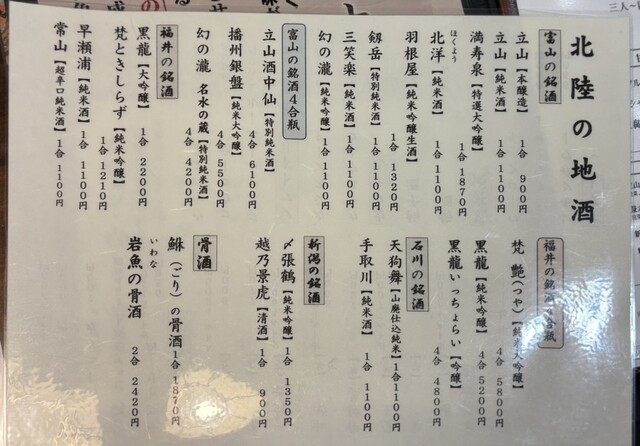 北陸の地酒
富山の銘酒
立山【本醸造】 1合 900円
立山【純米酒】 1合 1100円
満寿泉【特選大吟醸】 1合 1870円
ほくよう
北洋【純米酒】 1合 1100円
羽根屋【純米吟醸生酒】 1合 1320円
剱岳【特別純米酒】 1合 1100円
三笑楽【純米酒】 1合 1100円
幻の瀧【純米吟醸】 1合 1100円
富山の銘酒4合瓶
立山酒中仙【特別純米酒】 4合 6100円
播州銀盤【純米大吟醸】 4合 5500円
幻の瀧 名水の蔵【特別純米酒】 4合 4200円
福井の銘酒
黒龍【大吟醸】 1合 2200円
梵ときしらず【純米吟醸】 1合 1210円
早瀬浦【純米酒】 1合 1100円
常山【超辛口純米酒】 1合 1100円
福井の銘酒4合瓶
梵 艶(つや)【純米大吟醸】 4合 5800円
黒龍【純米吟醸】 4合 5200円
黒龍いっちょらい【吟醸】 4合 4800円
石川の銘酒
天狗舞【山廃仕込純米】 1合1100円
手取川【純米酒】 1合 1100円
新潟の銘酒
〆張鶴【純米吟醸】 1合 1350円
越乃景虎【清酒】 1合 900円
骨酒
鮴(ごり)の骨酒 1合 1870円
いわな
岩魚の骨酒 2合 2420円